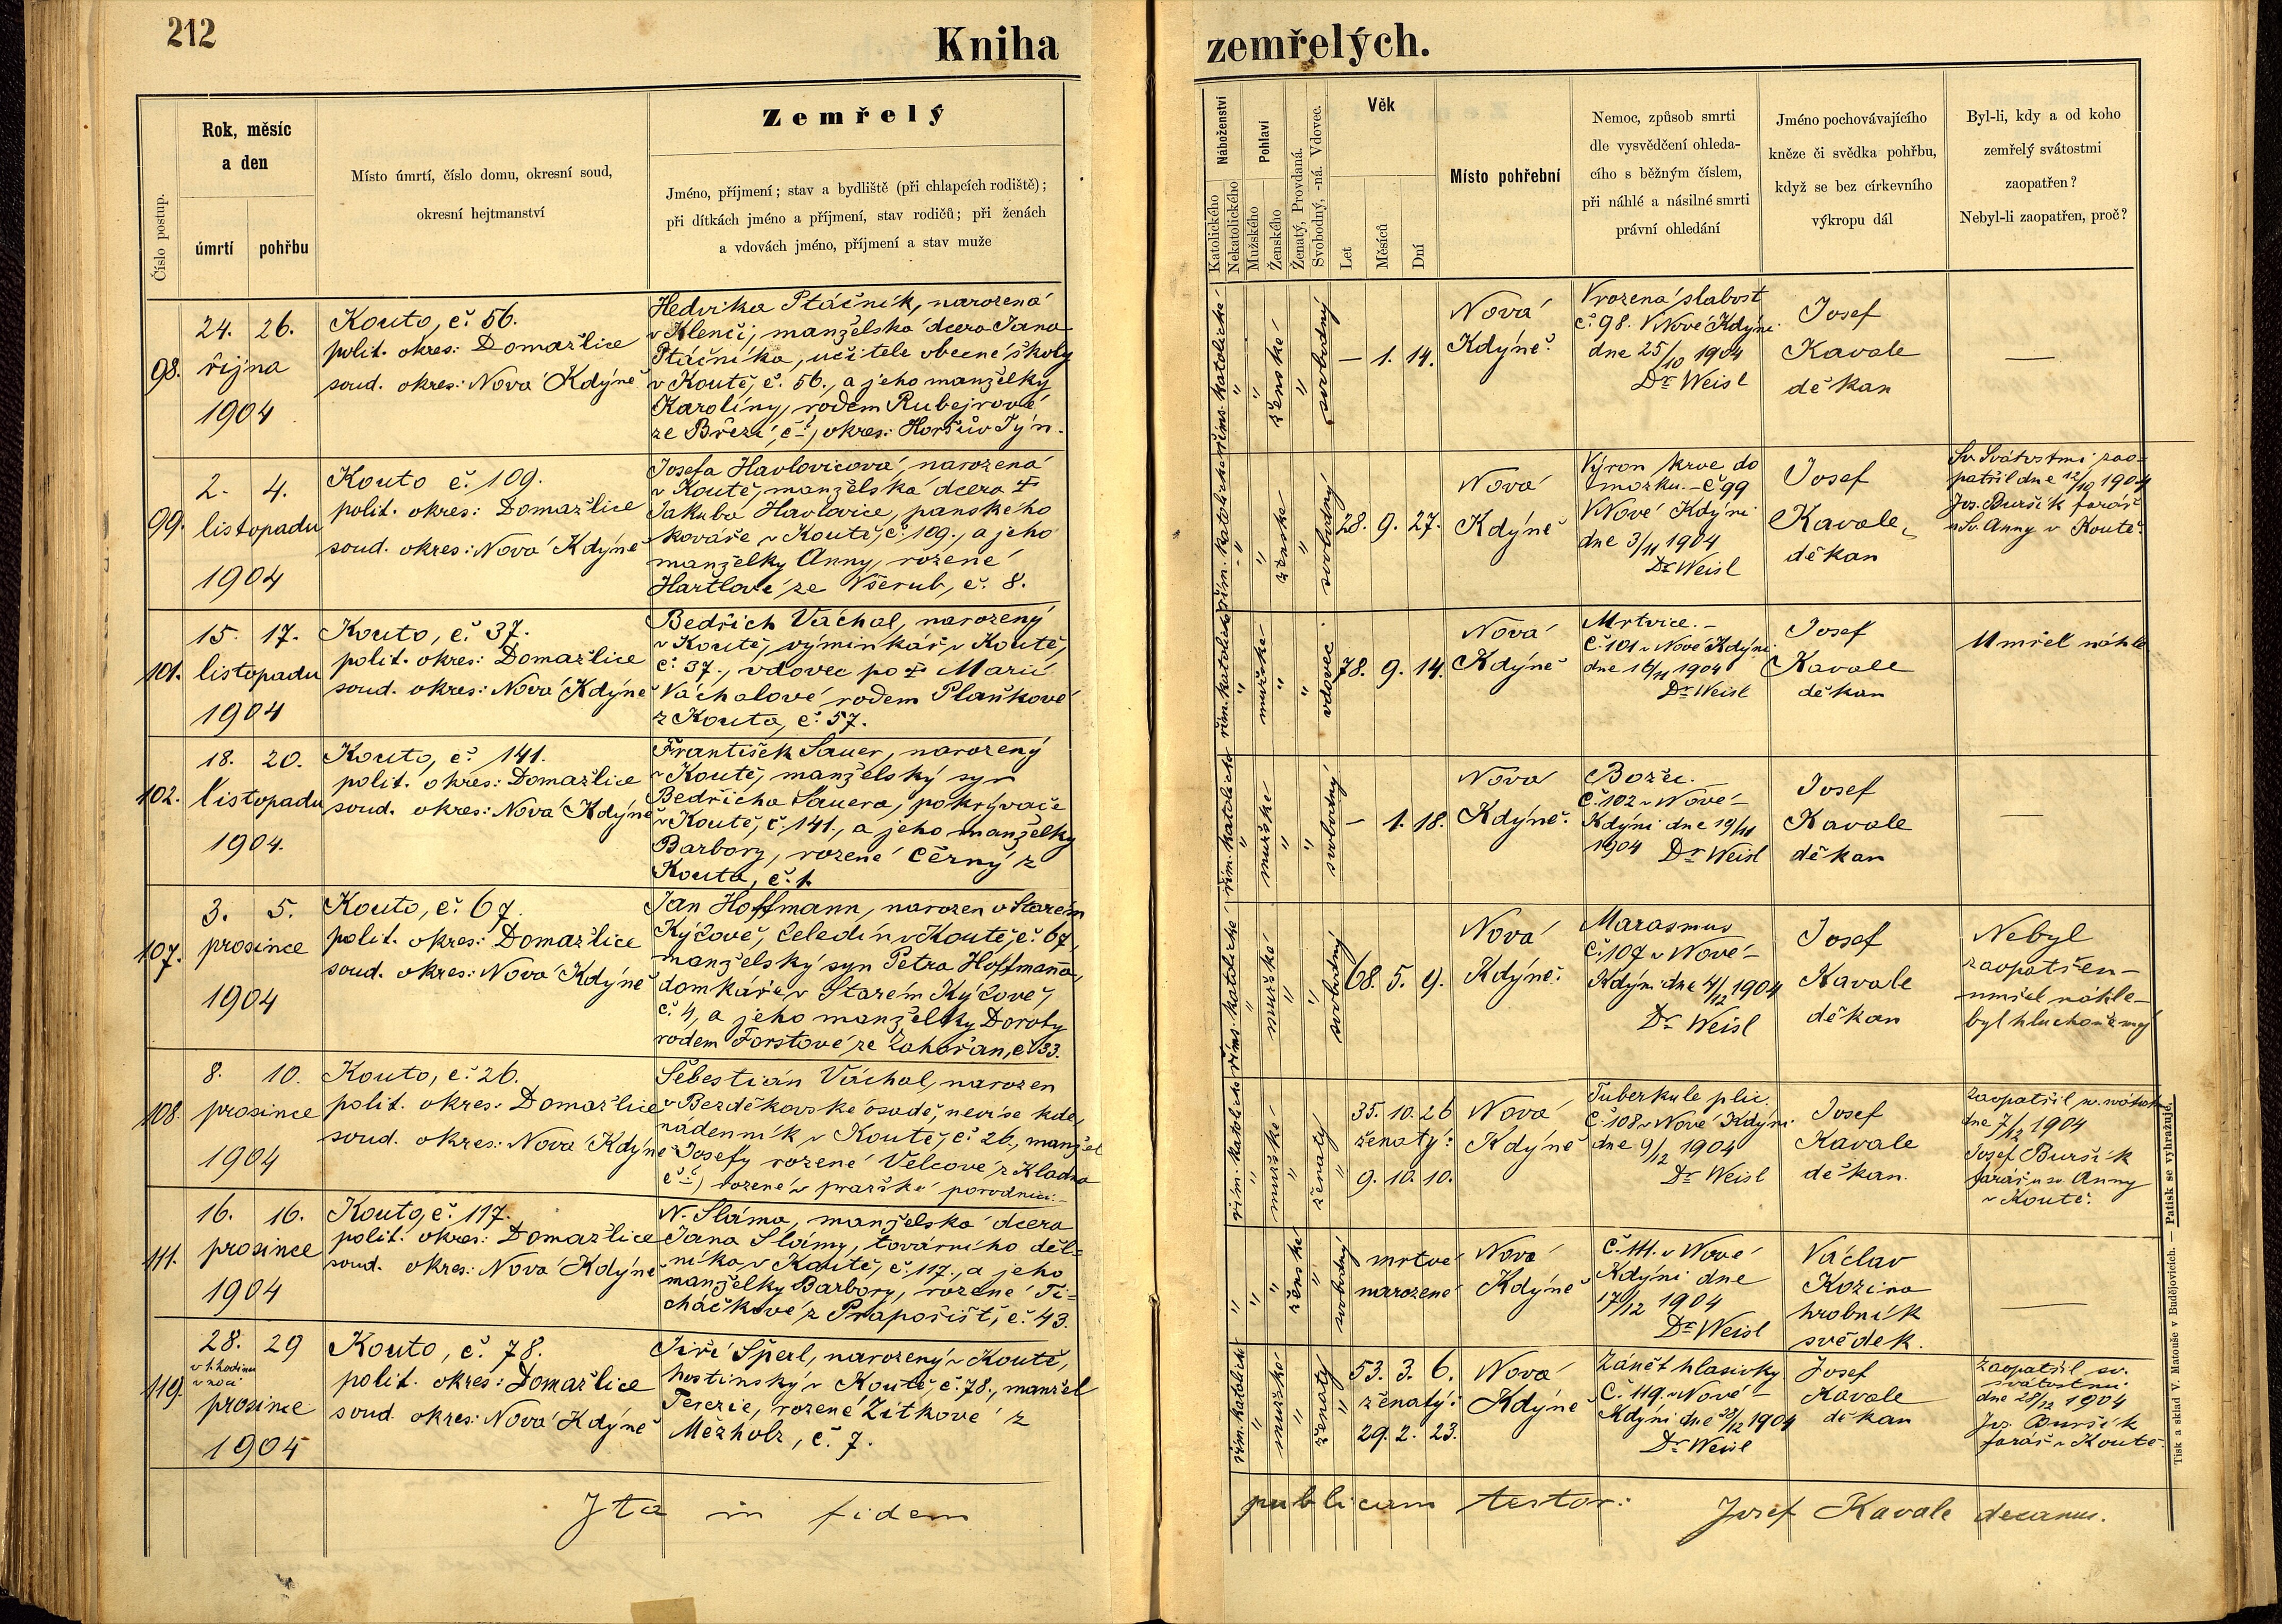 212
Kniha
zemřelých.
Číslo postup.
Rok, měsíc
a den
úmrtí
pohřbu
Místo úmrtí, číslo domu, okresní soud,
okresní hejtmanství
Zemřelý
Jméno, příjmení; stav a bydliště (při chlapcích rodiště);
při dítkách jméno a příjmení, stav rodičů; při ženách
a vdovách jméno, příjmení a stav muže
Náboženství
Katolického
Nekatolického
Pohlaví
Mužského
Ženského
Ženatý, Provdaná.
Svobodný, -ná. Vdovec.
Věk
Let
Měsíců
Dní
Místo pohřební
Nemoc, způsob smrti
dle vysvědčení ohleda-
cího s běžným číslem,
při náhlé a násilné smrti
právní ohledání
Jméno pochovávajícího
kněze či svědka pohřbu,
když se bez církevního
výkropu dál
Byl-li, kdy a od koho
zemřelý svátostmi
zaopatřen?
Nebyl-li zaopatřen, proč?
98.
24. 26.
října
1904
Kouto, č. 56.
polit. okres: Domažlice
soud. okres: Nová Kdýně
Hedvika Ptáčník, narozená
v Klenčí, manželská dcera Jana
Ptáčníka, učitele obecné školy
v Koutě, č. 56., a jeho manželky
Karolíny, rodem Rubejrové
ze Březí, č –, okres: Horšův Týn.
řims. katolické
ženské
svobodný
— 1. 14.
Nová
Kdýně.
Vrozená slabost
č. 98. V Nové Kdýni
dne 25/10 1904
Dr Weisl
Josef
Kavale
děkan
—
99.
2. 4.
listopadu
1904
Kouto č. 109.
polit. okres: Domažlice
soud. okres: Nová Kdýně
Josefa Havlovicová, narozená
v Koutě, manželská dcera †
Jakuba Havlovice, panského
kováře v Koutě, č. 109., a jeho
manželky Anny, rozené
Hartlové ze Všerub, č. 8.
řím. katolické
ženské
svobodný
28. 9. 27.
Nová
Kdýně
Výron krve do
mozku. – č 99
V Nové Kdýni
dne 3/11 1904
Dr Weisl
Josef
Kavale,
děkan
Sv. Svátostmi zao-
patřil dne 12/10 1904
Jos. Buršík farář
u Sv. Anny v Koutě.
101.
15. 17.
listopadu
1904
Kouto, č. 37.
polit. okres: Domažlice
soud. okres: Nová Kdýně
Bedřich Váchal, narozený
v Koutě, výminkář v Koutě,
č. 37., vdovec po † Marii
Váchalové rodem Plaňkové
z Kouta, č. 57.
řím. katolické
mužské
vdovec
78. 9. 14.
Nová
Kdýně
Mrtvice. –
Č. 101 v Nové Kdýni
dne 16/11 1904
Dr Weisl
Josef
Kavale
děkan
Umřel náhle
102.
18. 20.
listopadu
1904.
Kouto, č. 141.
polit. okres: Domažlice
soud. okres: Nová Kdýně
František Sauer, narozený
v Koutě, manželský syn
Bedřicha Sauera, pokrývače
v Koutě, č. 141., a jeho manželky
Barbory, rozené Černý z
Kouta, č. 1.
řím. katolické
mužské
svobodný
— 1. 18.
Nová
Kdýně.
Božec.
Č. 102 v Nové
Kdýni dne 19/11
1904 Dr Weisl
Josef
Kavale
děkan
—
107.
3. 5.
prosince
1904
Kouto, č. 67.
polit. okres: Domažlice
soud. okres: Nová Kdýně
Jan Hoffmann, narozen v Starém
Kýčově, čeledín v Koutě, č. 67,
manželský syn Petra Hoffmanna,
domkáře v Starém Kýčově,
č. 4, a jeho manželky Doroty
rodem Forstové ze Zahořan, č. 33.
řims. katolické
mužské
svobodný
68. 5. 9.
Nová
Kdýně.
Marasmus
č. 107 v Nové
Kdýni dne 4/12 1904
Dr Weisl
Josef
Kavale
děkan
Nebyl
zaopatřen –
umřel náhle –
byl hluchoněmý
108.
8. 10.
prosince
1904
Kouto, č. 26.
polit. okres: Domažlice
soud. okres: Nová Kdýně
Šebestián Váchal, narozen
v Bezděkovské osadě, neví se kde,
nádenník v Koutě, č. 26., manžel
Josefy rozené Velcové z Kladna
č –) rozené v pražské porodnici. –
řím. katolické
mužské
ženatý
35. 10. 26
ženatý:
9. 10. 10.
Nová
Kdýně
Tuberkule plic.
Č. 108 v Nové Kdýni
dne 9/12 1904
Dr Weisl
Josef
Kavale
děkan.
Zaopatřil sv. svátostmi
dne 7/12 1904
Josef Buršík
farář u sv. Anny
v Koutě.
111.
16. 16.
prosince
1904
Kouto, č. 117.
polit. okres: Domažlice
soud. okres: Nová Kdýně
N. Sláma, manželská dcera
Jana Slámy, továrního děl=
níka v Koutě, č. 117., a jeho
manželky Barbory, rozené Ti=
cháčkové z Prapořišť, č. 43.
ženské
svobodný
mrtvě
narozené
Nová
Kdýně
Č. 111. v Nové
Kdýni dne
17/12 1904
Dr Weisl
Václav
Kozina
hrobník
svědek.
—
119.
28. 29
v 1. hodinu
v noci
prosince
1904
Kouto, č. 78.
polit. okres: Domažlice
soud. okres: Nová Kdýně
Jiří Šperl, narozený v Koutě,
hostinský v Koutě, č. 78., manžel
Terezie, rozené Žitkové z
Mězholz, č. 7.
řím. katolické
mužské
ženatý
53. 3. 6.
ženatý:
29. 2. 23.
Nová
Kdýně
Zánět hlasivky
Č. 119. v Nové
Kdýni dne 28/12 1904
Dr Weisl
Josef
Kavale
děkan
Zaopatřil sv.
svátostmi
dne 28/12 1904
Jos. Buršík
farář v Koutě.
Ita in fidem
publicam testor:
Josef Kavale decanus.
Tisk a sklad V. Matouše v Budějovicích. — Patisk se vyhražuje.